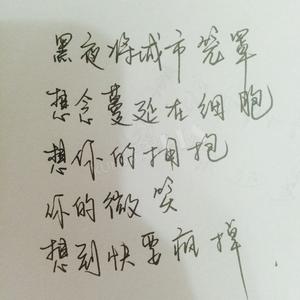 黑夜将城市笼罩
想念蔓延在细胞
想你的拥抱
你的微笑
想到快要疯掉.